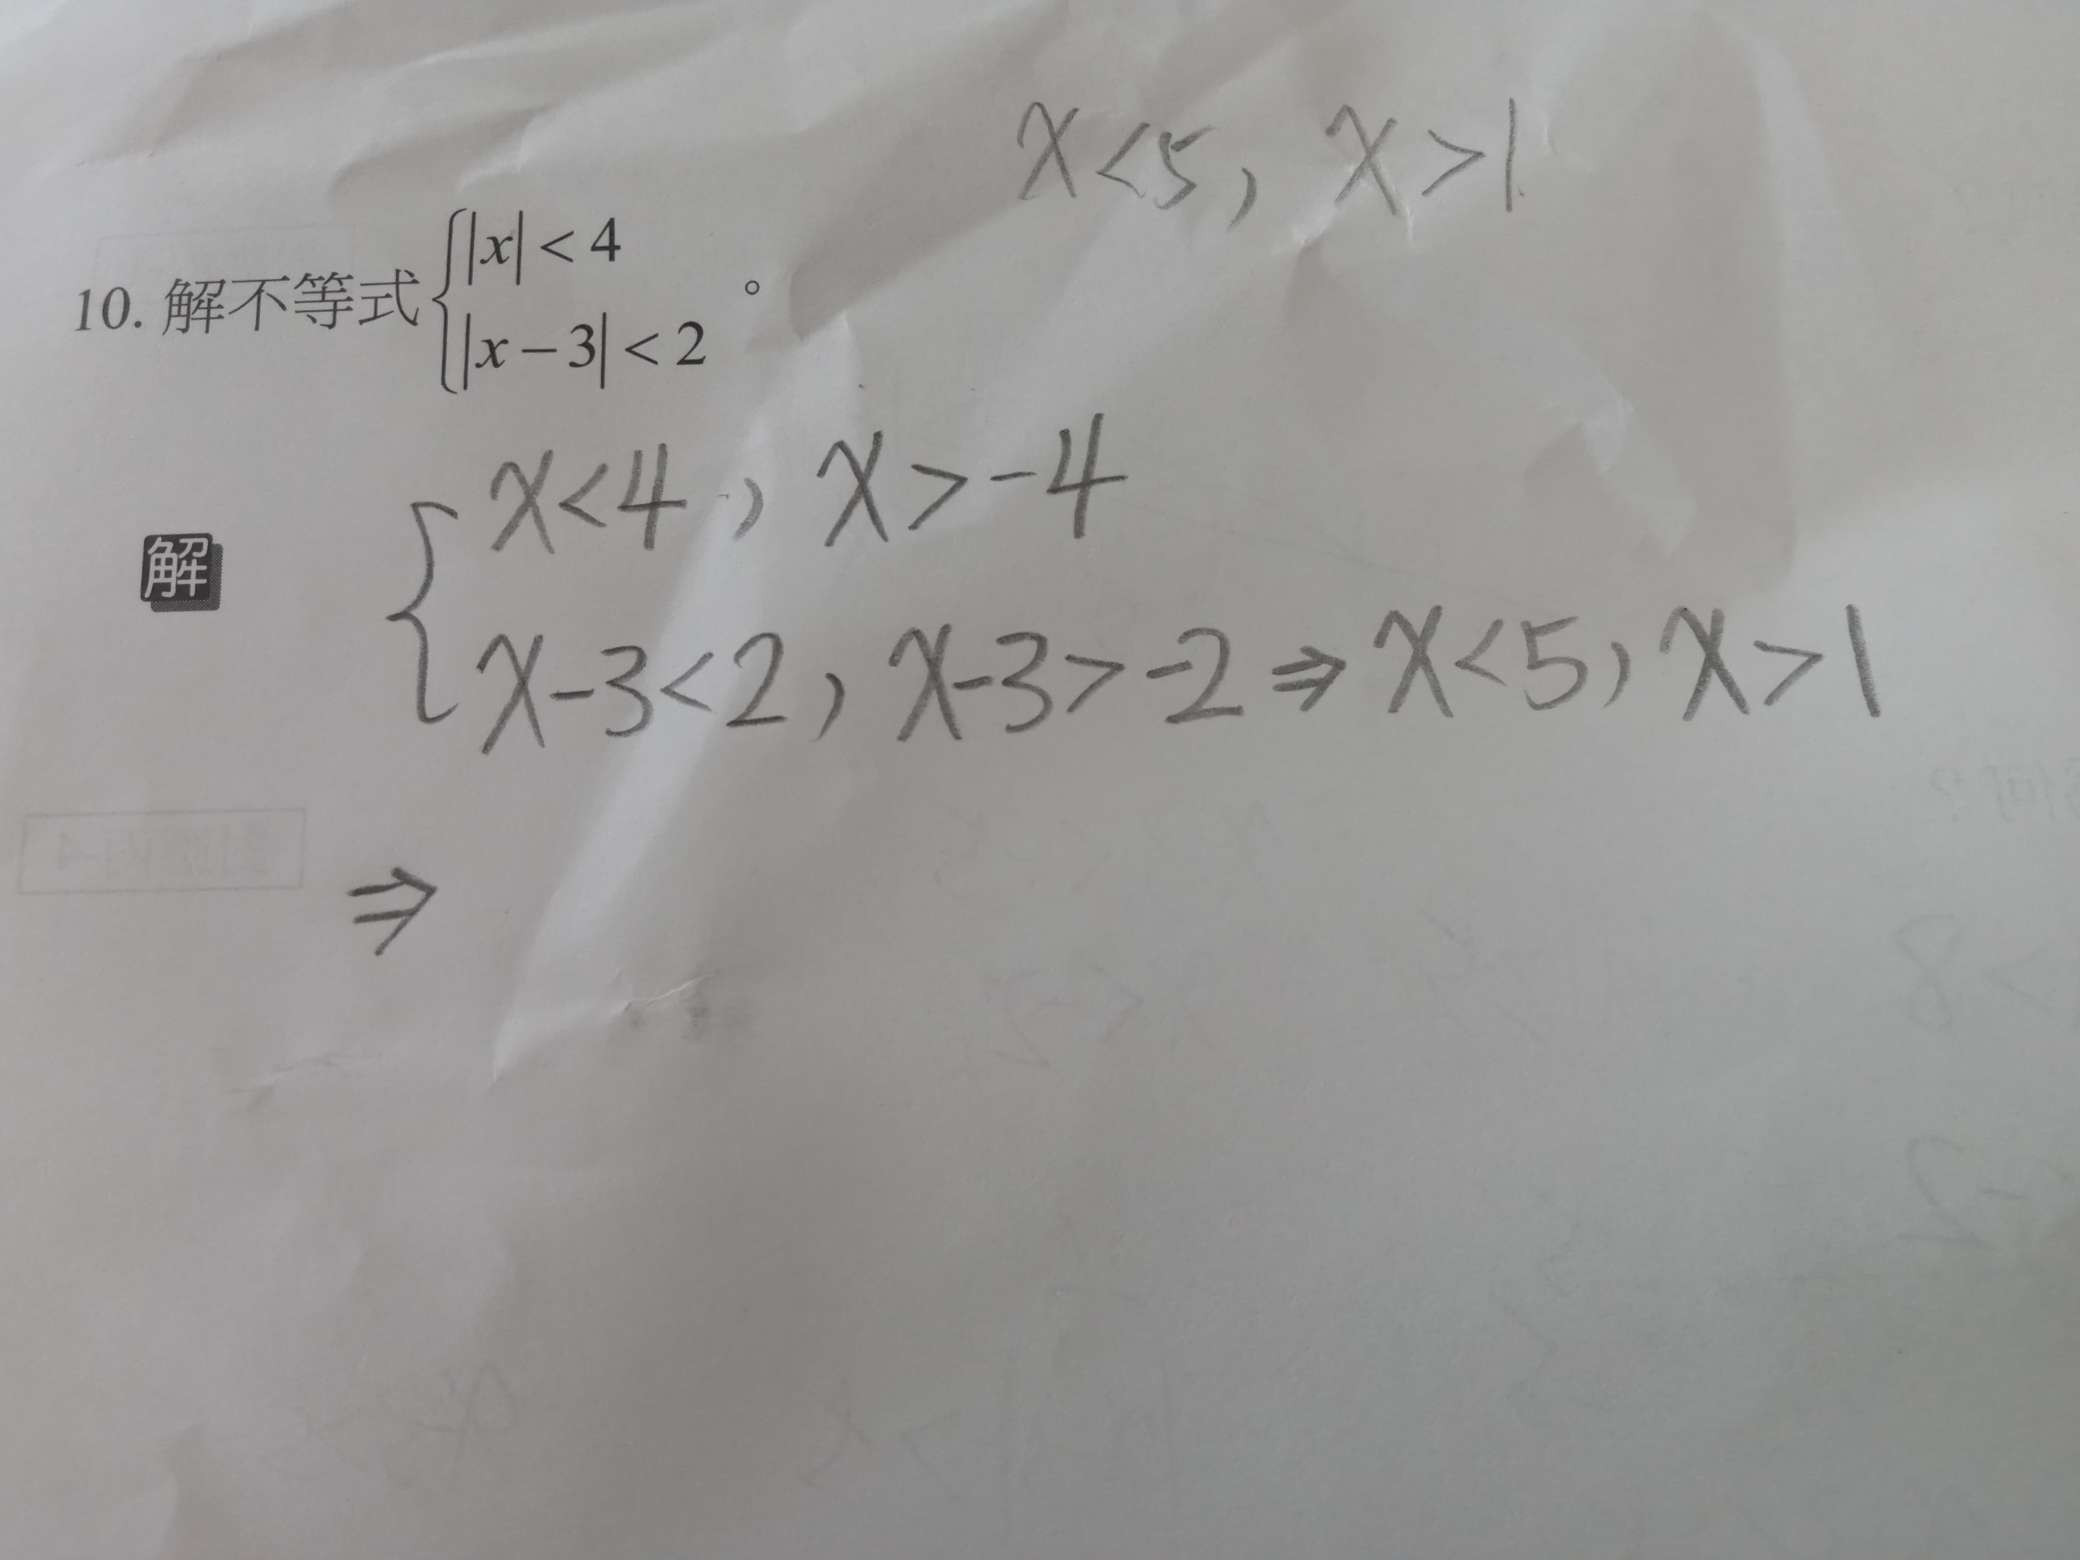 x<5, x>1
10. 解不等式 { |x| < 4
|x − 3| < 2 。
解
{ x<4, x>-4
x-3<2, x-3>-2 ⇒ x<5, x>1
⇒